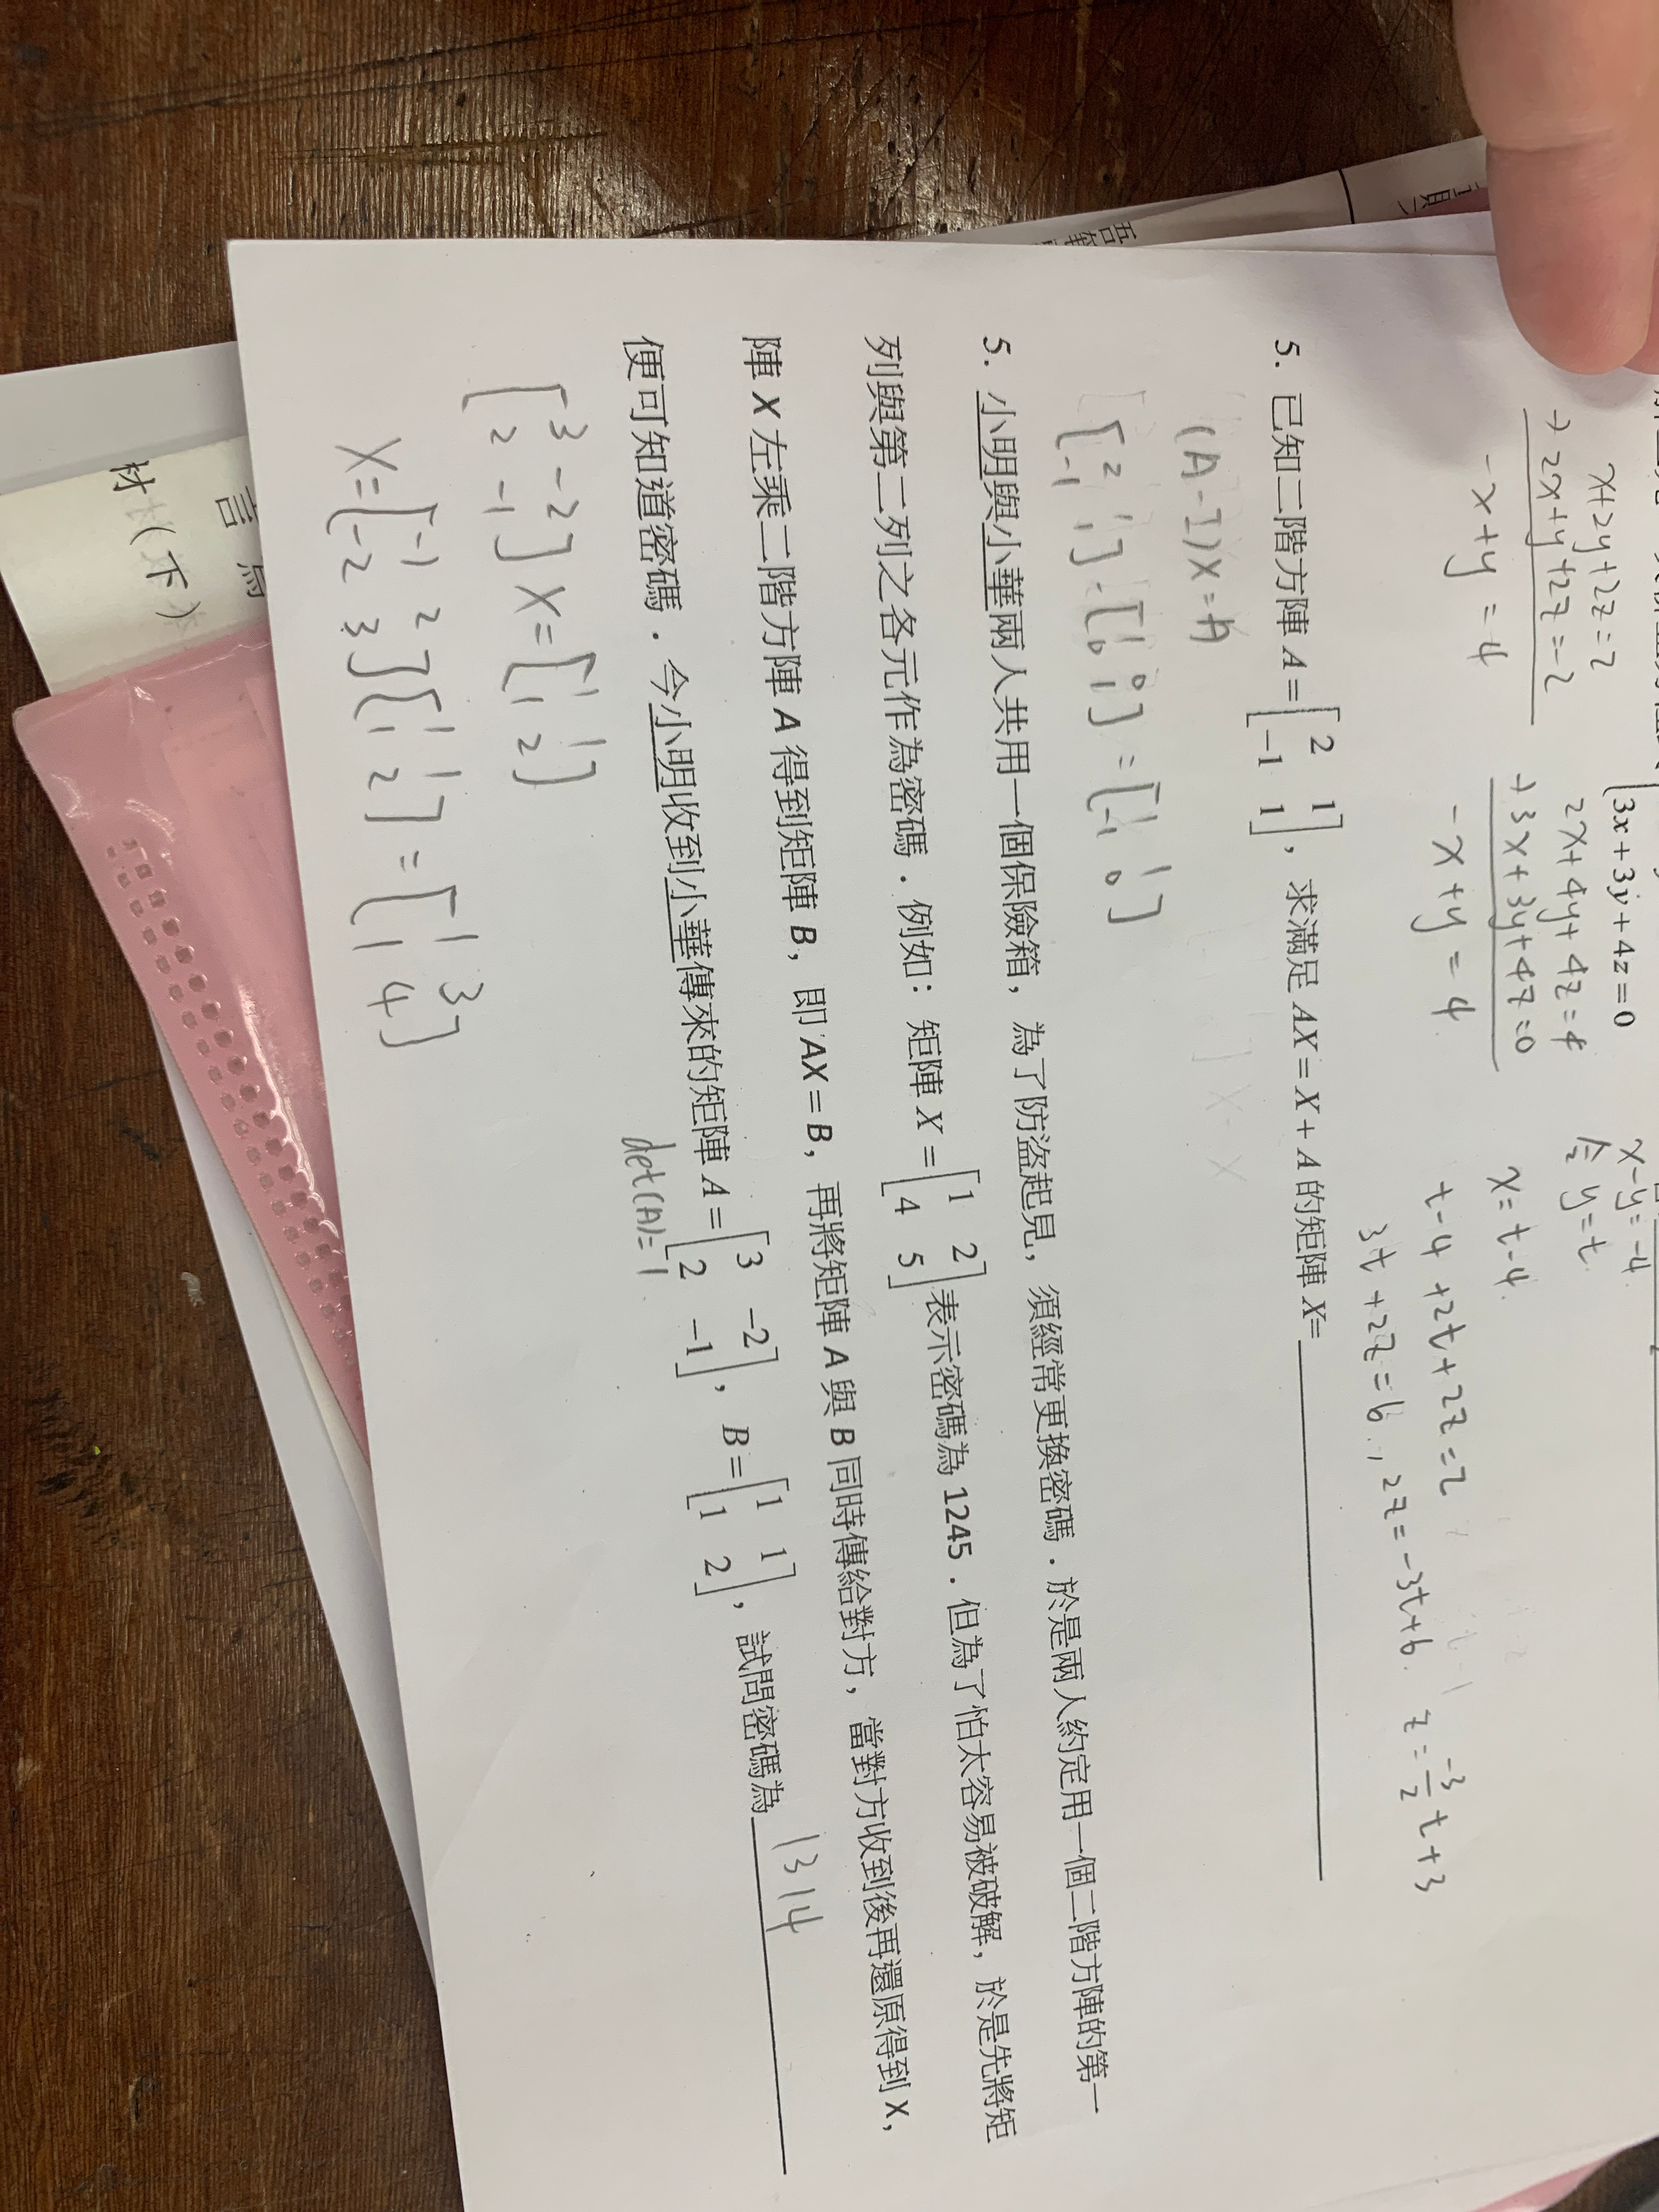 3x+3y+4z=0
x+2y+2z=2
-) 2x+y+2z=-2
-x+y=4
2x+4y+4z=4
-) 3x+3y+4z=0
-x+y=4
x-y=-4
令y=t
x=t-4
t-4+2t+2z=2
3t+2z=6, 2z=-3t+6. z=-3/2 t+3
5. 已知二階方陣 A=[2 1; -1 1],求滿足 AX=X+A 的矩陣 X=
(A-I)X=A
[2 1; -1 1]-[1 0; 0 1]=[1 1; -1 0]
5. 小明與小華兩人共用一個保險箱,為了防盜起見,須經常更換密碼.於是兩人約定用一個二階方陣的第一
列與第二列之各元作為密碼.例如:矩陣 X=[1 2; 4 5]表示密碼為 1245.但為了怕太容易被破解,於是先將矩
陣 X 左乘二階方陣 A 得到矩陣 B,即 AX=B,再將矩陣 A 與 B 同時傳給對方,當對方收到後再還原得到 X,
便可知道密碼.今小明收到小華傳來的矩陣 A=[3 -2; 2 -1],B=[1 1; 1 2],試問密碼為 1314
det(A)=1
[3 -2; 2 -1] X=[1 1; 1 2]
X=[-1 2; -2 3][1 1; 1 2]=[1 3; 1 4]
言
材(下)